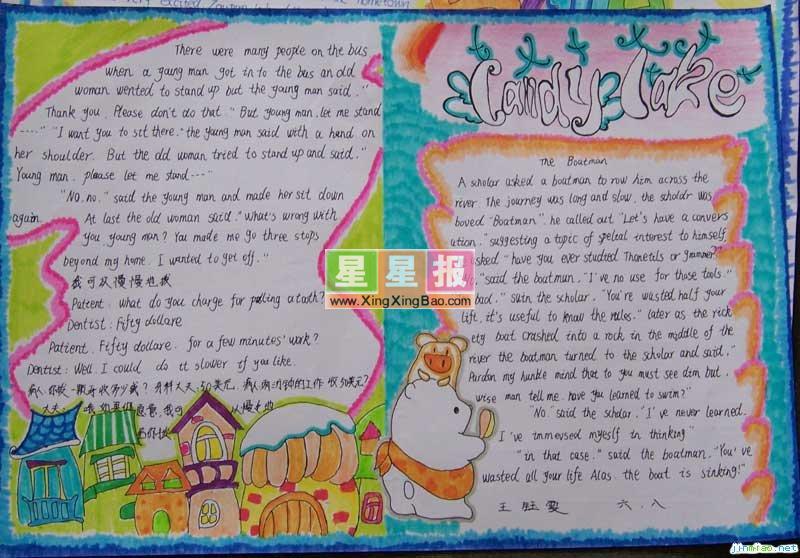 There were many people on the bus
when a young man got in to the bus an old
woman wented to stand up but the young man said."
Thank you. Please don't do that." But young man, let me stand
----" "I want you to sit there." the young man said with a hand on
her shoulder. But the old woman tried to stand up and said."
Young man. please let me stand---"
"No, no." said the young man and made her sit down
again. At last the old woman said."What's wrong with
you, young man? You made me go three stops
beyond my home. I wanted to get off."
我可以慢慢地拔
Patient: what do you charge for pulling a tooth?
Dentist: Fifty dollare
Patient. Fifty dollare. for a few minutes' work?
Dentist: Well. I could do it slower if you like.
Candy lake
The Boatman
A scholar asked a boatman to row him across the
river. The journey was long and slow. the scholar was
boved "Boatman". he called out "Let's have a convers
ution." suggesting a topic of speleal interest to himself.
asked "have you ever studied Thonetils or grammer?"
No." said the boatmun. "I've no use for those tools."
bad." suin the scholar. "You're wasted half your
lift. it's useful to know the rules." later as the rick
ety boat crashed into a rock in the middle of the
river the boatman turned to the scholar and said."
Pardon my humble mind that to you must see dim but,
wise man tell me. have you learned to swim?"
"No." said the scholar. "I've never learned.
I've immevsed myeslf in thinking"
"in that case." said the boatman. "You've
wasted all your life Alas. the boat is sinking!"
六.八
星星报
www.XingXingBao.com